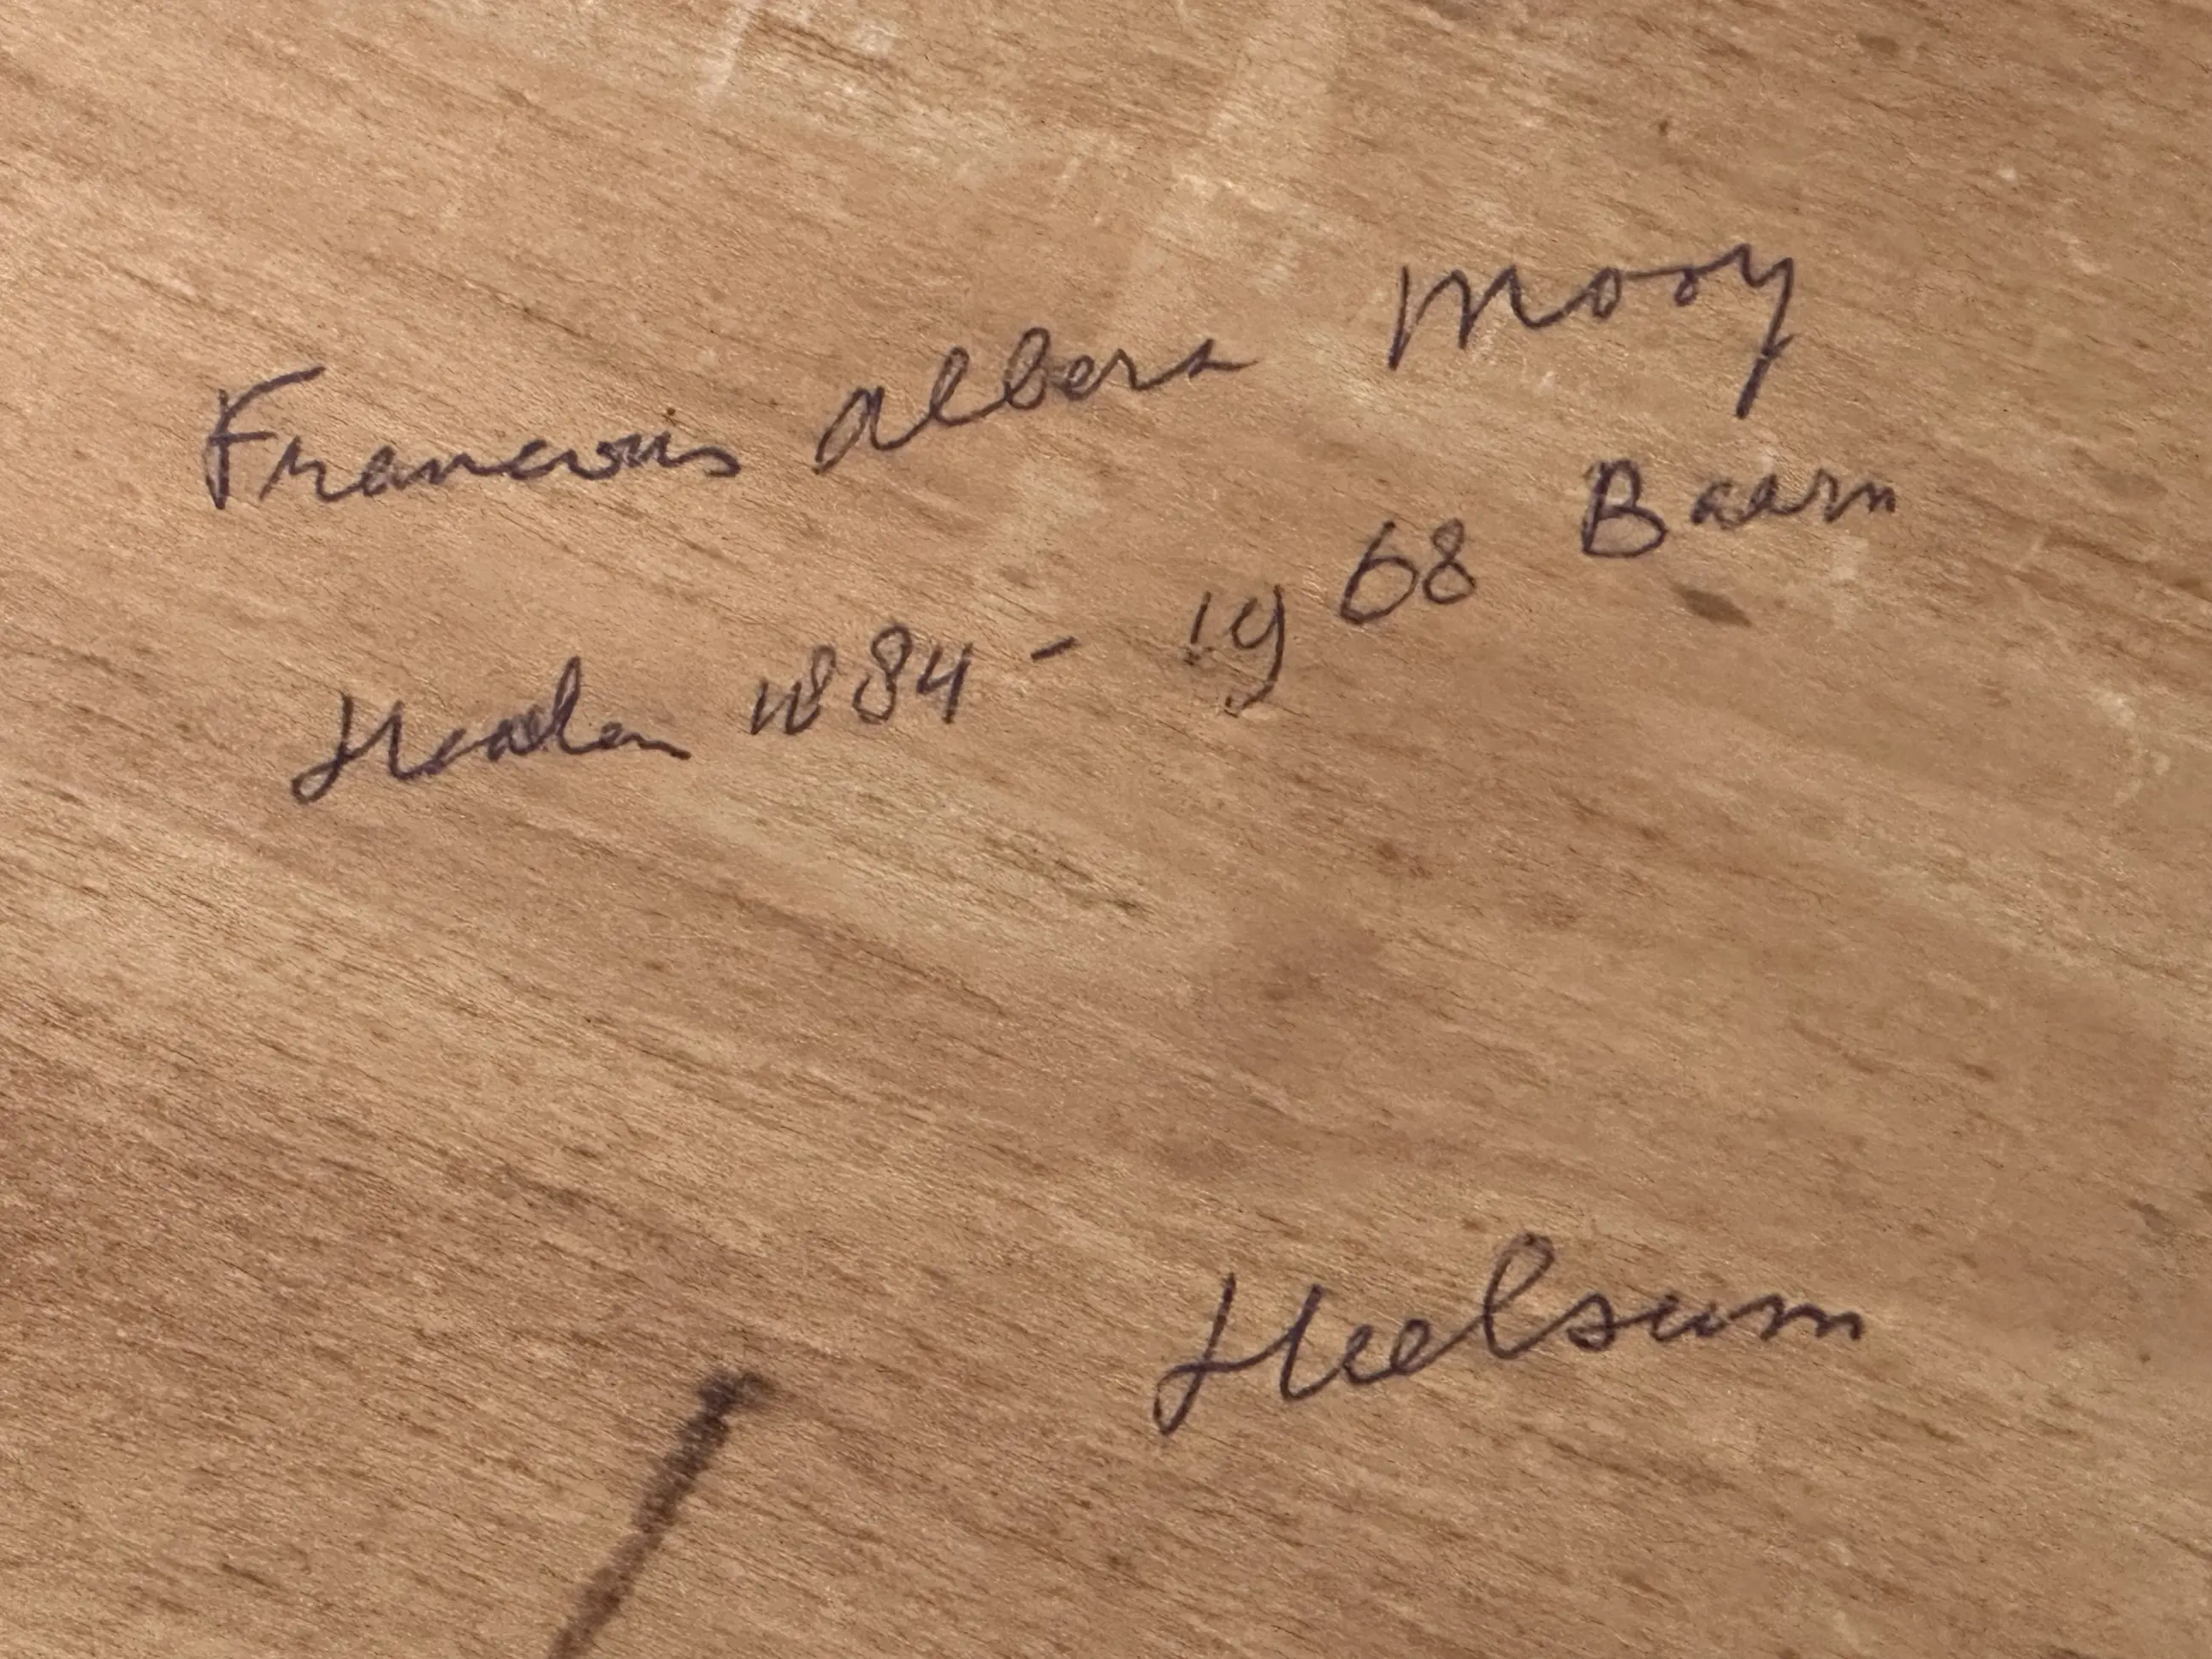 Francois Albera Mooy
1884 - 1968 Baarn
Heelsum